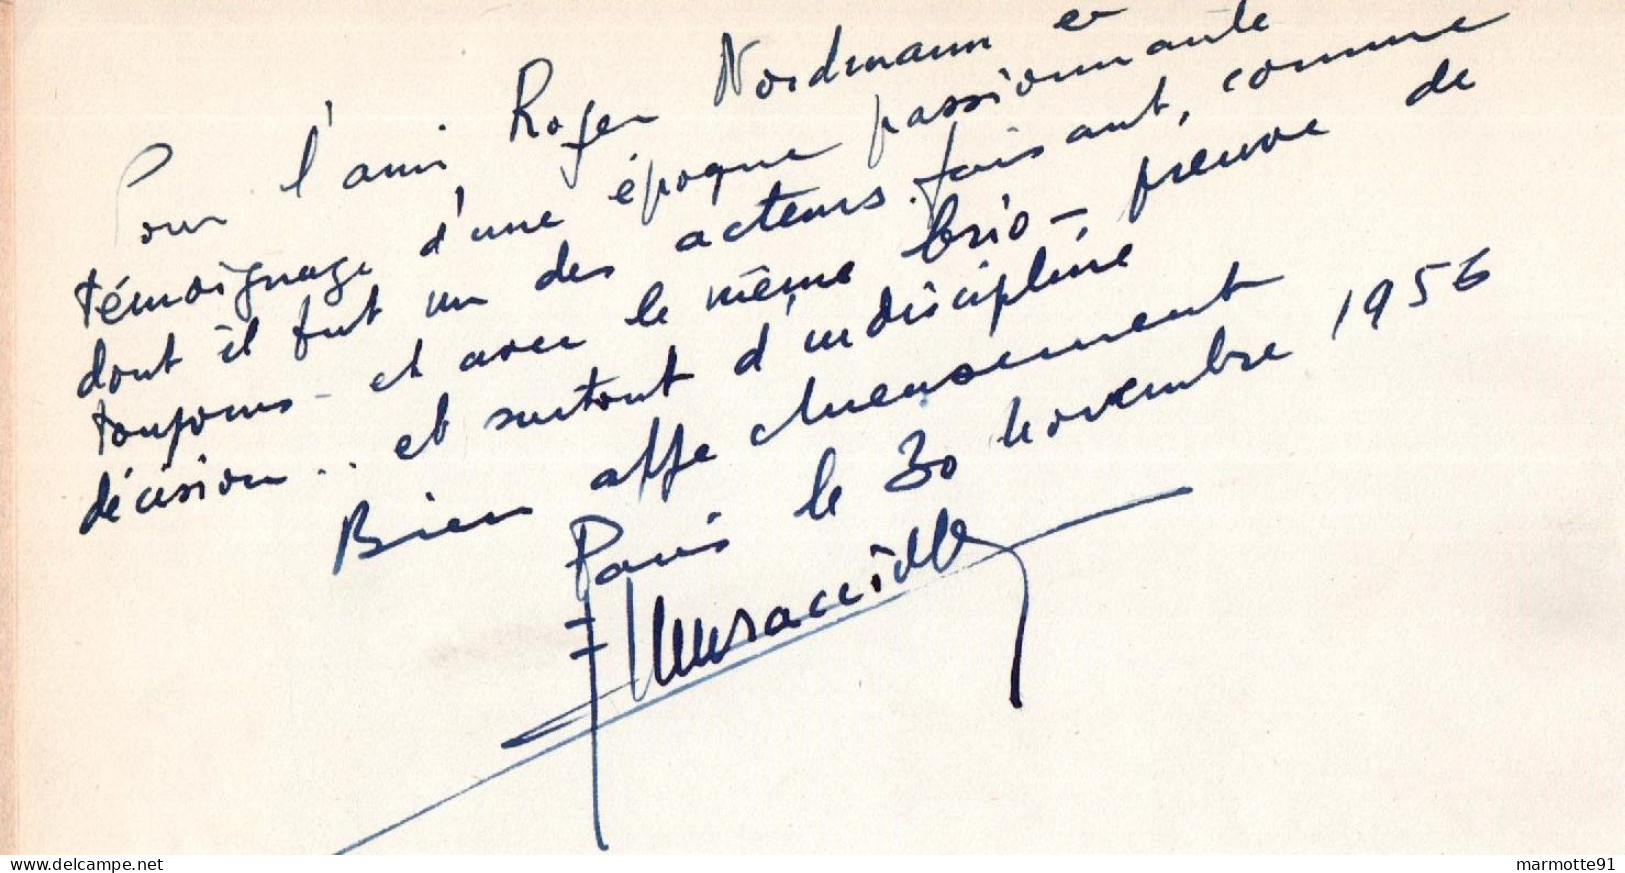 Pour l'ami Roger Nordmann ce
témoignage d'une époque passionnante
dont il fut un des acteurs. faisant, comme
toujours - et avec le même brio -, preuve de
décision .. et surtout d'indiscipline
Bien affectueusement
Paris le 30 novembre 1956
www.delcampe.net
marmotte91